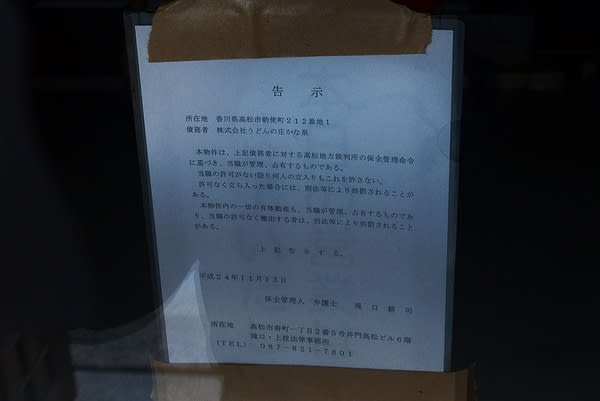 告示
所在地 香川県高松市勅使町212番地1
債務者 株式会社うどんの庄かな泉
本物件は、上記債務者に対する高松地方裁判所の保全管理命令
に基づき、当職が管理、占有するものである。
当職の許可がない限り何人の立入りもこれを許さない。
許可なく立ち入った場合には、刑法等により処罰されることが
ある。
本物件内の一切の有体動産も、当職が管理、占有するものであ
り、当職の許可なく搬出する者は、刑法等により処罰されること
がある。
上記告示する。
平成24年11月13日
保全管理人 弁護士 滝口耕司
所在地 高松市寿町一丁目2番5号井門高松ビル6階
滝口・上枝法律事務所
(TEL) 087-821-7801